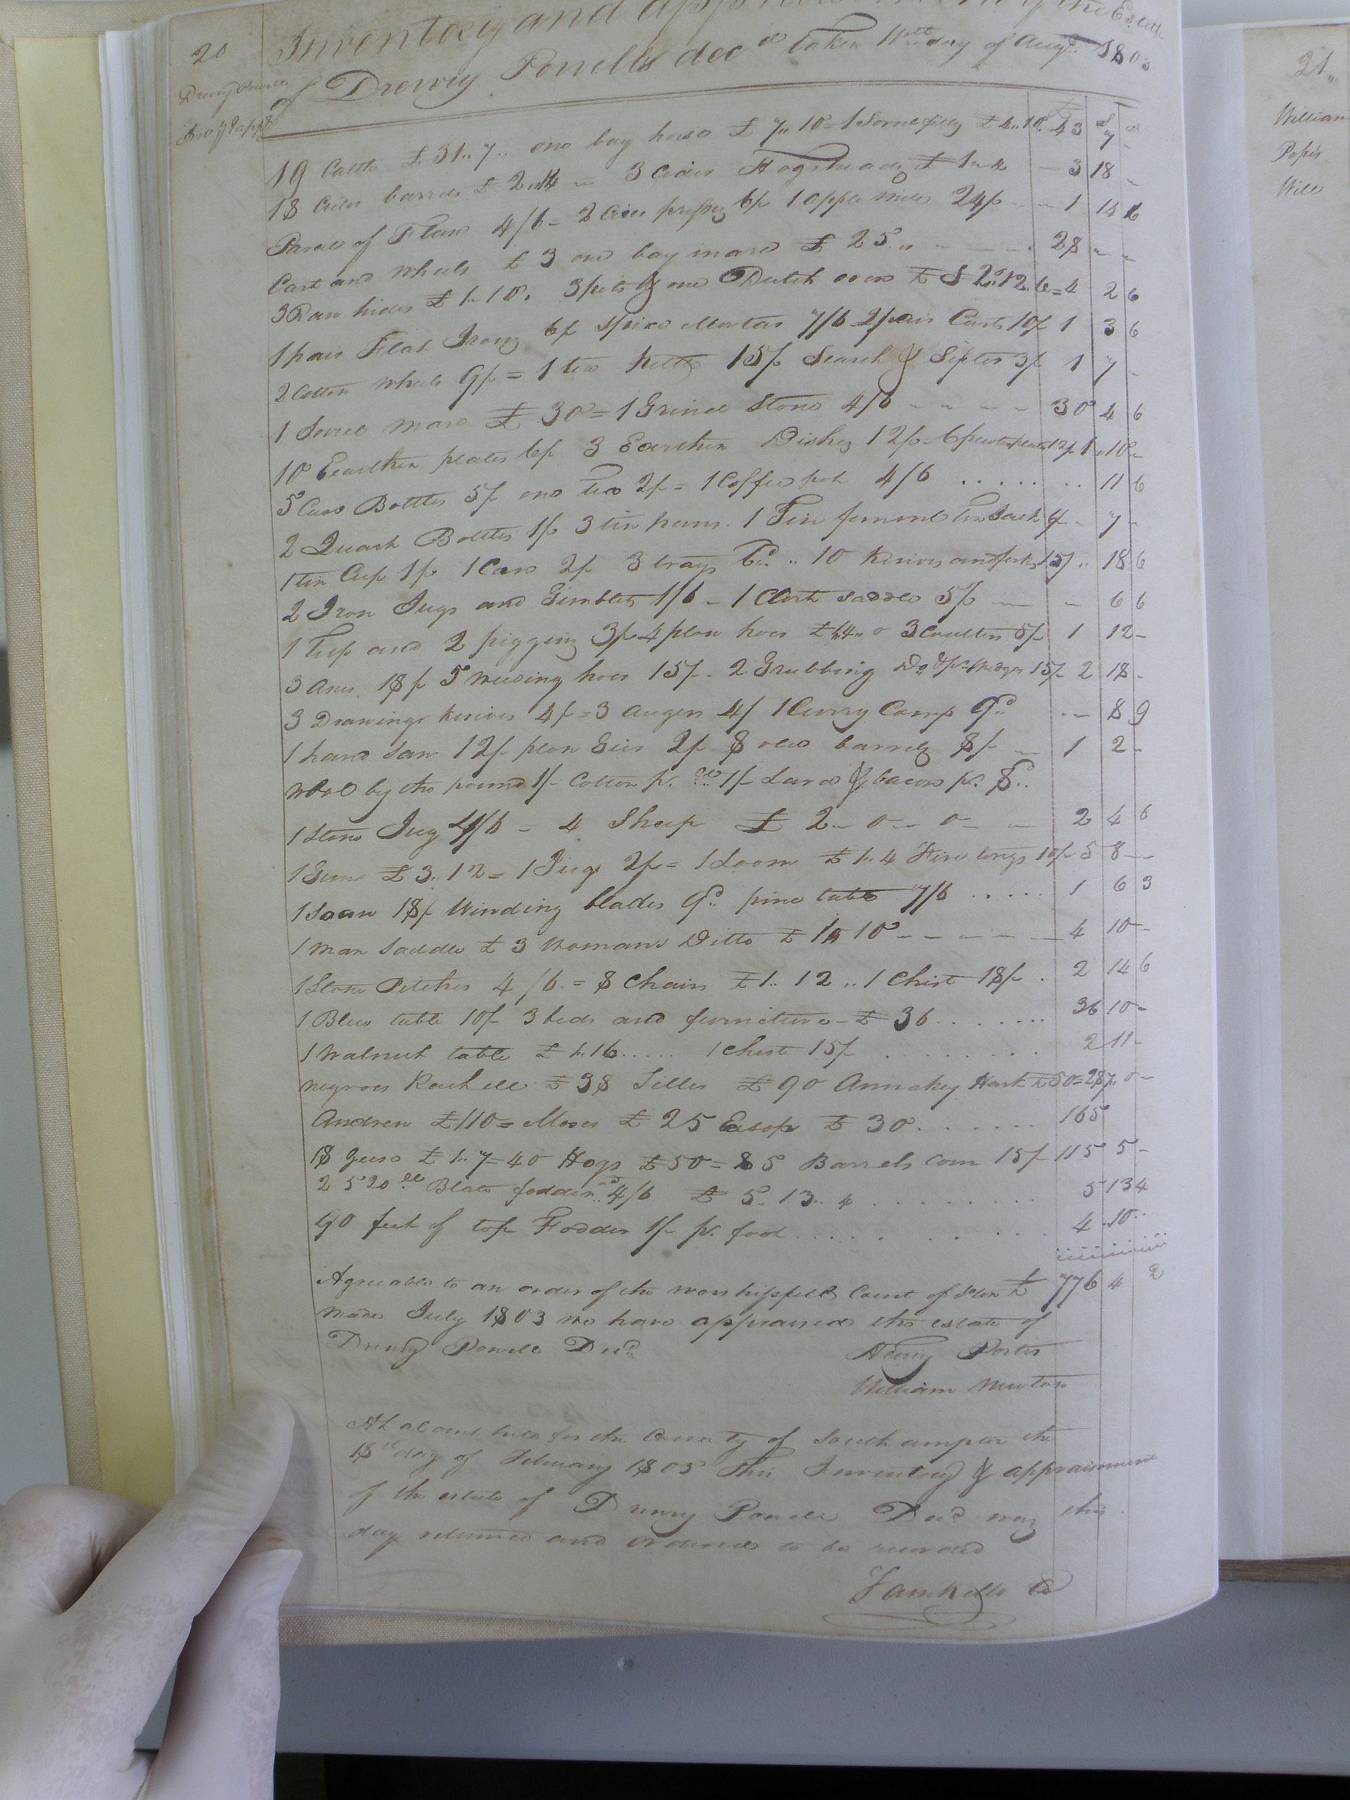 20
Inventory and appraisement of the Estate
of Drewry Powells dec'd taken 11th day of Augt. 1803
Drury Powell
Inv. & app.
£ S d
19 Cattle £ 31.. 7.. one bay horse £ 7.. 10 = 1 £ 4.. 10. 43 7 -
18 Cider barrels £ 2.. 14 = 3 Cider Hogsheads £ 1.. 4 3 18 -
Parcel of Flax 4/6 = 2 Cider 6/ 1 apple mill 24/ 1 14 6
Cart and wheels £ 3 one bay mare £ 25.. 28 - -
3 Raw hides £ 1.. 10. 3 pots & one Dutch oven £ 2.. 12.. 6 = 4 2 6
1 pair Flat Irons 6/ Spice Mortar 7/6 2 pair Cards 10/ 1 3 6
2 Cotton wheels 9/ = 1 tea Kettle 15/ Search & Sifter 3/ 1 7 -
1 Sorrel mare £ 30 = 1 Grind Stone 4/6 30 4 6
10 Earthen plates 6/ 3 Earthen Dishes 12/ 6 pewter plates 12/ 1 10 -
5 Case Bottles 5/ one tea 2/ = 1 Coffee pot 4/6 11 6
2 Quart Bottles 1/ 3 tin pans 1 Tin funnel 7 -
1 tin Cup 1/ 1 Case 2/ 3 trays 6d .. 10 Knives and forks 15/ .. 18 6
2 Iron Jugs and Gimblets 1/6 - 1 Cart saddle 5/ 6 6
1 Tub and 2 piggins 3/ 4 plow hoes £ 1.. 4.. 0 3 Coulters 5/ 1 12 -
3 axes 18/ 5 weeding hoes 15/ - 2 Grubbing Do 15/ 2 18 -
3 Drawing Knives 4/ = 3 augers 4/ 1 Curry Comb 9d 8 9
1 hand saw 12/ plow Gier 2/ 8 old barrels 8/ 1 2 -
Wool by the pound 1/ Cotton pr. do 1/ Lard & bacon pr. 8d
1 Stone Jug 4/6 - 4 Sheep £ 2 - 0 - 0 - 2 4 6
1 Gun £ 3.. 12 = 1 Jug 2/ = 1 Loom £ 1.. 4 Fire tongs 10/ 5 8 -
1 18/ Winding blades 9d pine table 7/6 1 6 3
1 man saddle £ 3 womans Ditto £ 1.. 10 4 10 -
1 Stone Pitcher 4/6 = 8 Chairs £ 1.. 12 .. 1 Chest 18/ 2 14 6
1 Blue table 10/ 3 beds and furniture £ 36 36 10 -
1 Walnut table £ 1.. 16 1 Chest 15/ 2 11 -
negroes Rachell £ 38 Siller £ 90 Annakey £ 50 = 287 0 -
Andrew £ 110 = Moses £ 25 Easop £ 30 165
18 Geese £ 1.. 7 = 40 Hogs £ 50 = 85 Barrels Corn 15/ 115 5 -
2520 lb Blade fodder 4/6 £ 5.. 13.. 4 5 13 4
90 feet of top Fodder 1/ pr. foot 4 10
Agreeable to an order of the worshipfull Court of £ 776 4 2
made July 1803 we have appraised the estate of
Drury Powell Decd
Henry Porter
William Newton
At a Court held for the County of Southampton the
18th day of February 1805 This Inventory & appraisement
of the estate of Drury Powell Decd was this
day returned and ordered to be recorded
Saml Kello CC
21
William
Popes
Will